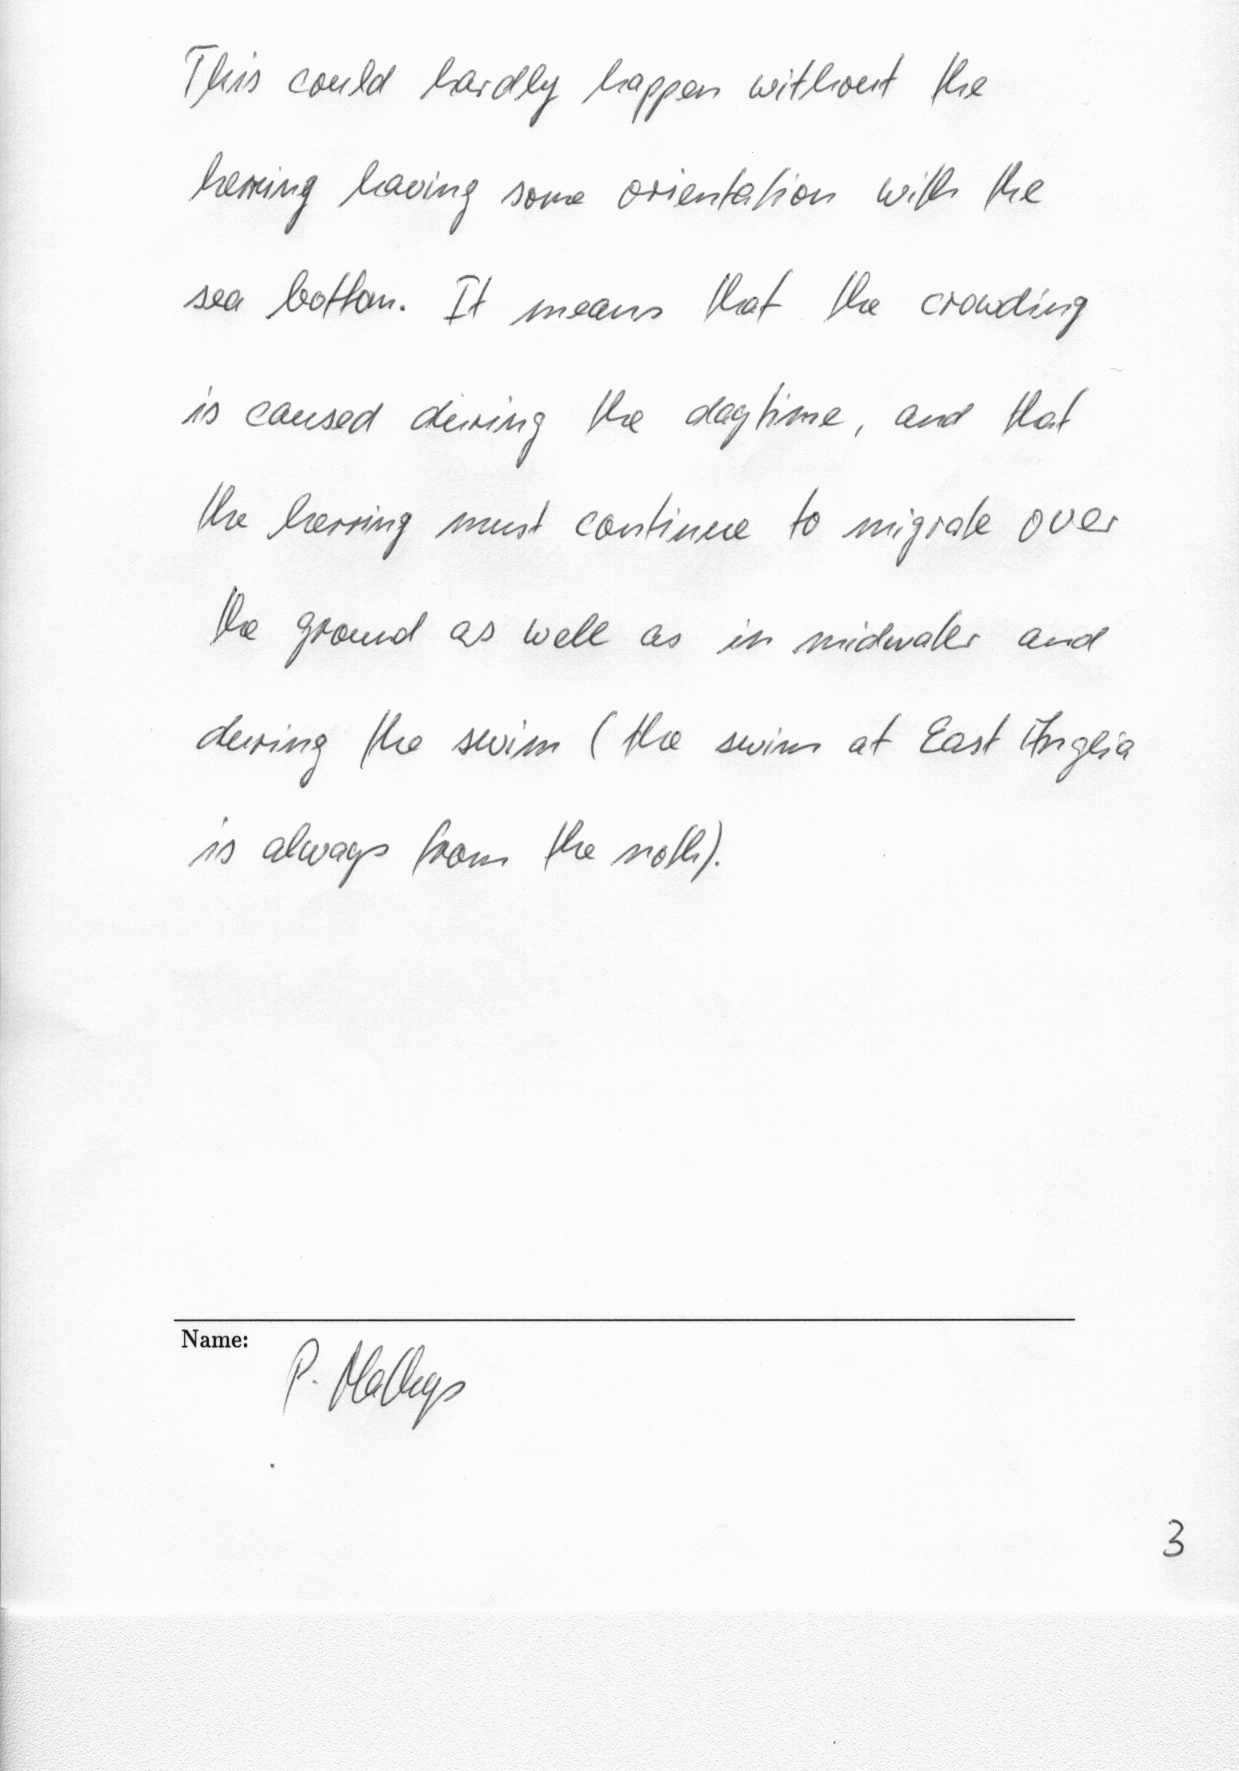 This could hardly happen without the
herring having some orientation with the
sea bottom. It means that the crowding
is caused during the daytime, and that
the herring must continue to migrate over
the ground as well as in midwater and
during the swim (the swim at East Anglia
is always from the noth).
Name:
P.
3